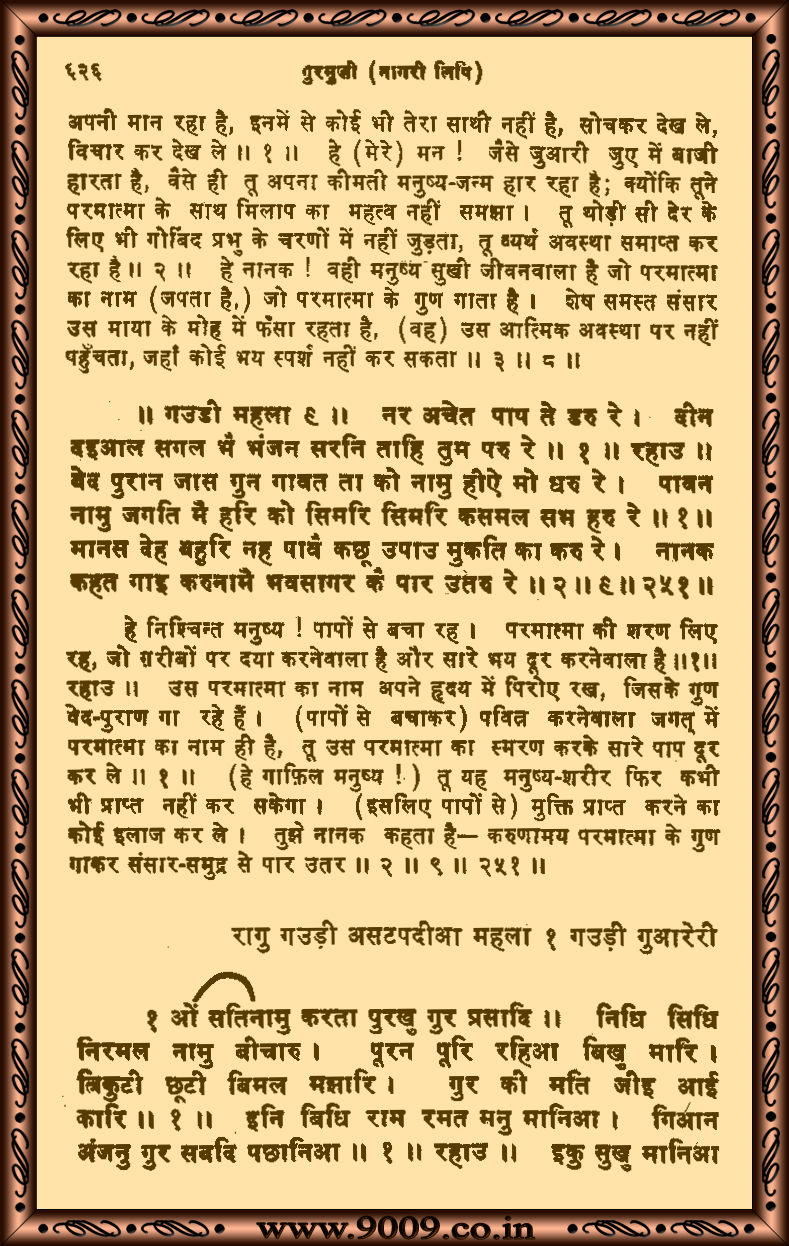 ६२६ गुरमुखी (नागरी लिपि)
अपनी मान रहा है, इनमें से कोई भी तेरा साथी नहीं है, सोचकर देख ले,
विचार कर देख ले ॥ १ ॥ हे (मेरे) मन ! जैसे जुआरी जुए में बाजी
हारता है, वैसे ही तू अपना कीमती मनुष्य-जन्म हार रहा है; क्योंकि तूने
परमात्मा के साथ मिलाप का महत्व नहीं समझा । तू थोड़ी सी देर के
लिए भी गोबिंद प्रभु के चरणों में नहीं जुड़ता, तू व्यर्थ अवस्था समाप्त कर
रहा है ॥ २ ॥ हे नानक ! वही मनुष्य सुखी जीवनवाला है जो परमात्मा
का नाम (जपता है,) जो परमात्मा के गुण गाता है । शेष समस्त संसार
उस माया के मोह में फँसा रहता है, (वह) उस आत्मिक अवस्था पर नहीं
पहुँचता, जहाँ कोई भय स्पर्श नहीं कर सकता ॥ ३ ॥ ८ ॥
॥ गउडी महला ९ ॥ नर अचेत पाप ते डरु रे । दीन
दइआल सगल भै भंजन सरनि ताहि तुम परु रे ॥ १ ॥ रहाउ ॥
बेद पुरान जास गुन गावत ता को नामु हीऐ मो धरु रे । पावन
नामु जगति मै हरि को सिमरि सिमरि कसमल सभ हरु रे ॥ १ ॥
मानस देह बहुरि नह पावै कछू उपाउ मुकति का करु रे । नानक
कहत गाइ करुनामै भवसागर कै पार उतरु रे ॥ २ ॥ ९ ॥ २५१ ॥
हे निश्चिन्त मनुष्य ! पापों से बचा रह । परमात्मा की शरण लिए
रह, जो ग़रीबों पर दया करनेवाला है और सारे भय दूर करनेवाला है ॥१॥
रहाउ ॥ उस परमात्मा का नाम अपने हृदय में पिरोए रख, जिसके गुण
वेद-पुराण गा रहे हैं । (पापों से बचाकर) पवित्र करनेवाला जगत् में
परमात्मा का नाम ही है, तू उस परमात्मा का स्मरण करके सारे पाप दूर
कर ले ॥ १ ॥ (हे गाफ़िल मनुष्य !) तू यह मनुष्य-शरीर फिर कभी
भी प्राप्त नहीं कर सकेगा । (इसलिए पापों से) मुक्ति प्राप्त करने का
कोई इलाज कर ले । तुझे नानक कहता है— करुणामय परमात्मा के गुण
गाकर संसार-समुद्र से पार उतर ॥ २ ॥ ९ ॥ २५१ ॥
रागु गउड़ी असटपदीआ महला १ गउड़ी गुआरेरी
१ ओं सतिनामु करता पुरखु गुर प्रसादि ॥ निधि सिधि
निरमल नामु बीचारु । पूरन पूरि रहिआ बिखु मारि ।
त्रिकुटी छूटी बिमल मझारि । गुर की मति जीइ आई
कारि ॥ १ ॥ इनि बिधि राम रमत मनु मानिआ । गिआन
अंजनु गुर सबदि पछानिआ ॥ १ ॥ रहाउ ॥ इकु सुखु मानिआ
www.9009.co.in